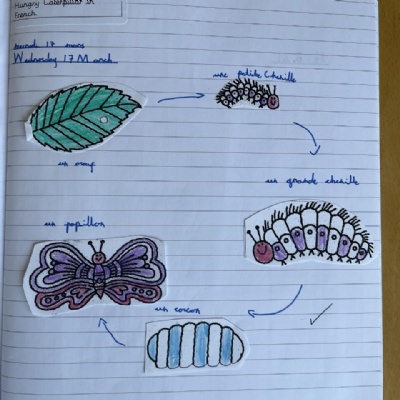 Hungry Caterpillar in
French
mardi 17 mars
Wednesday 17 March
une petite chenille
un oeuf
un grande chenille
un papillon
un cocon